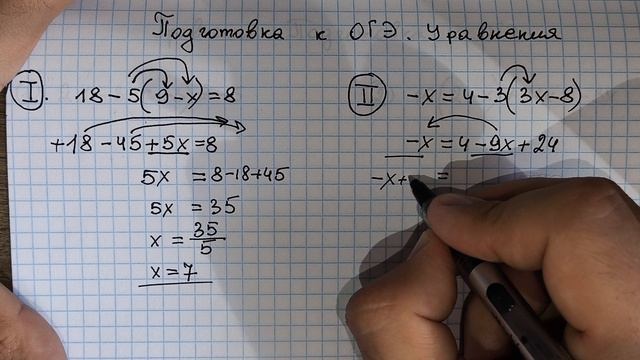 Подготовка к ОГЭ. Уравнения
I.
18-5(9-x)=8
+18-45+5x=8
5x =8-18+45
5x =35
x =35/5
x=7
II
-x=4-3(3x-8)
-x=4-9x+24
-x+ =